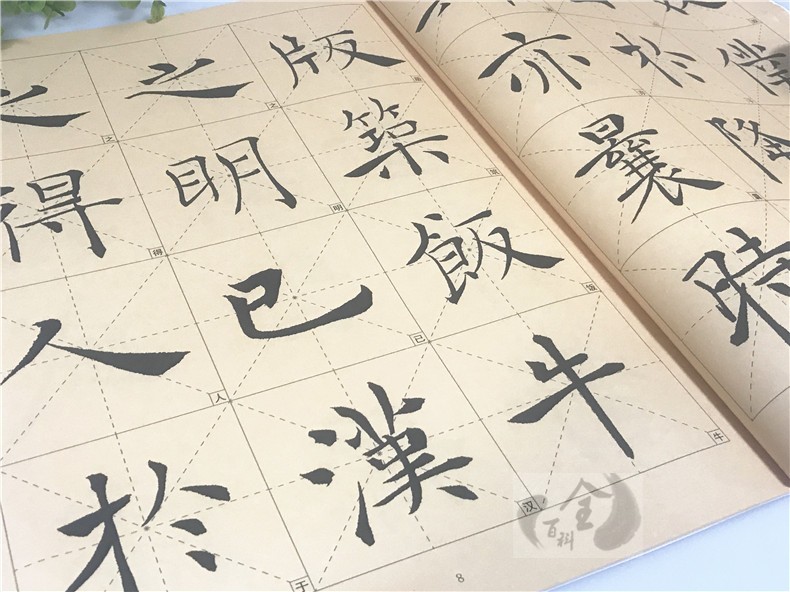 版築飯牛
牛
之明已漢
之明已汉
之得人於
得人于
8
於隆
亦曩時
全
百科